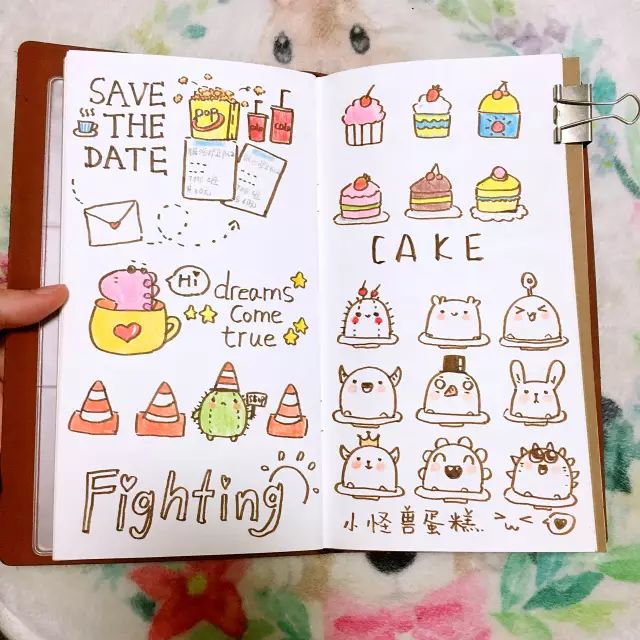 SAVE
THE
DATE
pop
Cola
Cola
Hi
dreams
come
true
Fighting
CAKE
小怪兽蛋糕